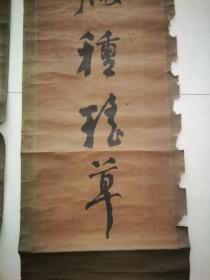 種瑤草